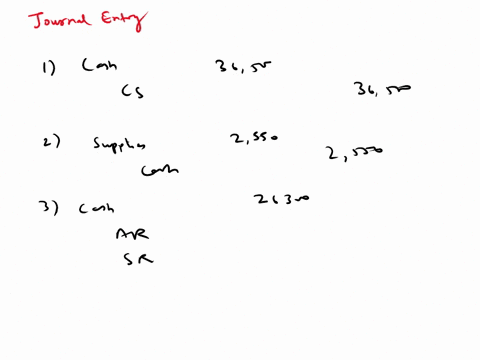 Journal Entry
1) Cash 36,500
CS 36,500
2) Supplies 2,550
Cash 2,550
3) Cash 26300
AR
SR